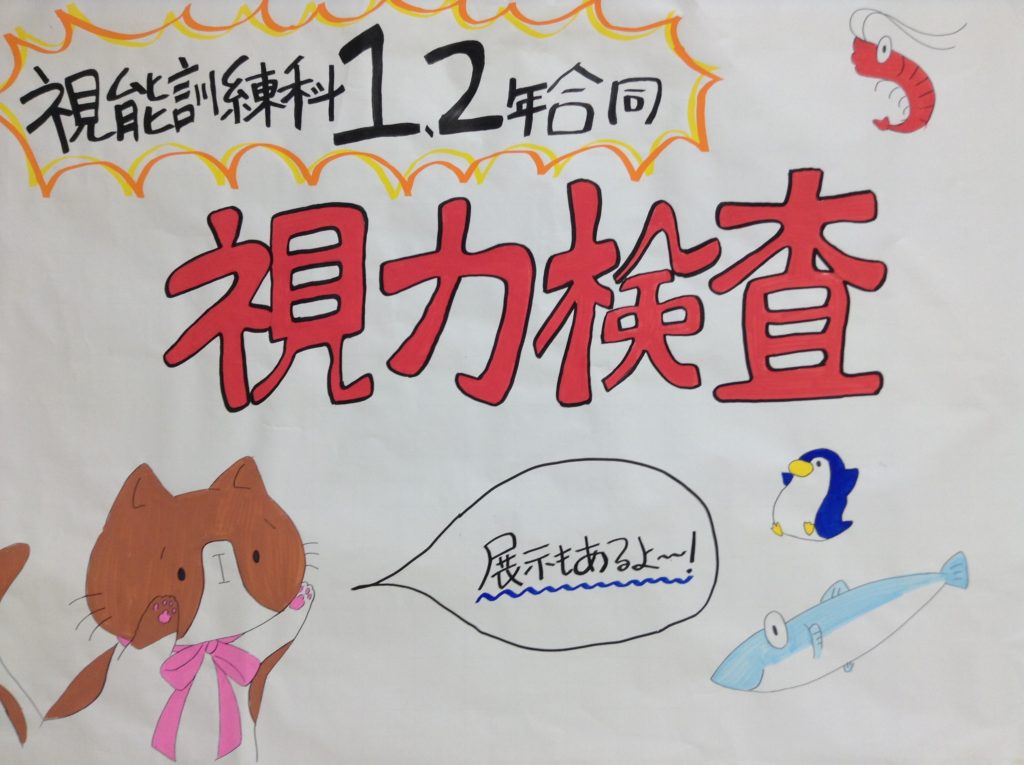 視能訓練科1、2年合同
視力検査
展示もあるよ〜!